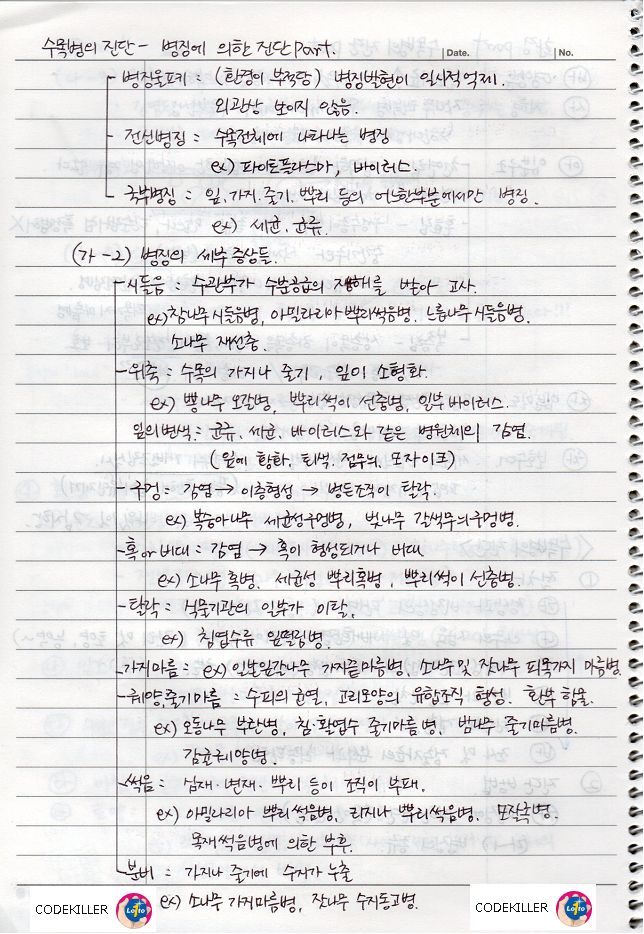 수목병의 진단 - 병징에 의한 진단 part.
Date. No.
병징은폐 : (환경이 부적당) 병징발현이 일시적 억제.
외관상 보이지 않음.
전신병징 : 수목전체에 나타나는 병징
ex) 파이토플라스마, 바이러스.
국부병징 : 잎.가지.줄기.뿌리 등의 어느한부분에서만 병징.
ex) 세균.균류.
(가-2) 병징의 세부증상들.
시들음 : 수관부가 수분공급의 저해를 받아 고사.
ex) 참나무 시들음병, 아밀라리아 뿌리썩음병. 느릅나무 시들음병.
소나무 재선충.
위축 : 수목의 가지나 줄기, 잎이 소형화.
ex) 뽕나무 오갈병, 뿌리썩이 선충병, 일부 바이러스.
잎의변색 : 균류, 세균, 바이러스와 같은 병원체의 감염.
(잎에 황화, 퇴색. 점무늬, 모자이크)
구멍 : 감염 → 이층형성 → 병든조직이 탈락.
ex) 복숭아나무 세균성구멍병, 벚나무 갈색무늬구멍병.
혹or비대 : 감염 → 혹이 형성되거나 비대
ex) 소나무 혹병. 세균성 뿌리혹병, 뿌리썩이 선충병.
탈락 : 식물기관의 일부가 이탈.
ex) 침엽수류 잎떨림병.
가지마름 : ex) 일본잎갈나무 가지끝마름병, 소나무 및 잣나무 피목가지 마름병.
궤양,줄기마름 : 수피의 균열, 고리모양의 유합조직 형성. 환부 함몰.
ex) 오동나무 부란병, 침·활엽수 줄기마름병, 밤나무 줄기마름병.
썩음 : 심재·변재·뿌리 등이 조직이 부패.
ex) 아밀라리아 뿌리썩음병, 리지나 뿌리썩음병. 모잘록병.
목재썩음병에 의한 부후.
분비 : 가지나 줄기에 수지가 누출
ex) 소나무 가지마름병, 잣나무 수지동고병.
CODEKILLER Lotto CODEKILLER Lotto